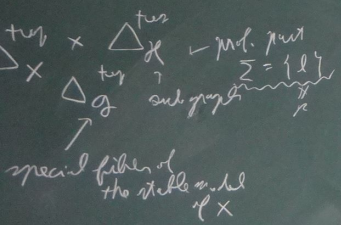 tep × Δ tep
Δ X H ← prol. part
Δ tep G subgraph Σ = {l}
special fiber of
the stable model
of X